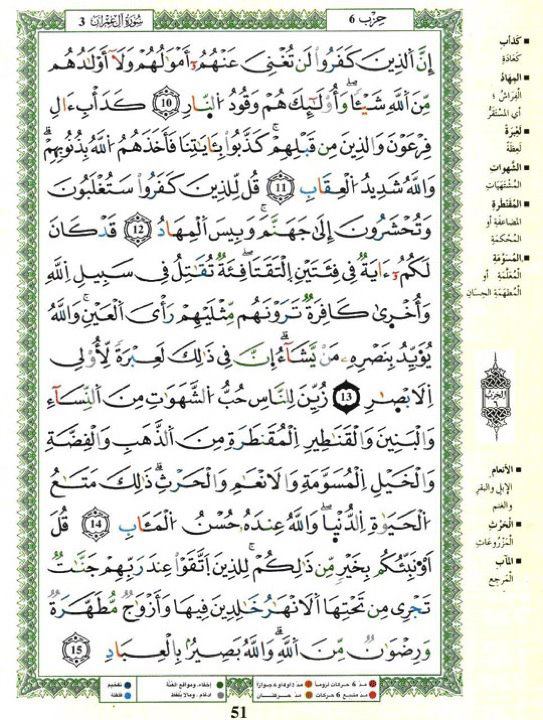 حِزْب 6
سُورَةُ آلِ عِمْرَانَ 3
إِنَّ الَّذِينَ كَفَرُوا لَن تُغْنِيَ عَنْهُمُۥٓ أَمْوَٰلُهُمْ وَلَآ أَوْلَٰدُهُم
مِّنَ اللَّهِ شَيْـًٔا وَأُوْلَٰٓئِكَ هُمْ وَقُودُ النَّارِ 10 كَدَأْبِ ءَالِ
فِرْعَوْنَ وَالَّذِينَ مِن قَبْلِهِمْ كَذَّبُوا بِـَٔايَٰتِنَا فَأَخَذَهُمُ اللَّهُ بِذُنُوبِهِمْ
وَاللَّهُ شَدِيدُ الْعِقَابِ 11 قُل لِّلَّذِينَ كَفَرُوا سَتُغْلَبُونَ
وَتُحْشَرُونَ إِلَىٰ جَهَنَّمَ وَبِيسَ الْمِهَادُ 12 قَدْ كَانَ
لَكُمُۥٓ ءَايَةٌ فِي فِئَتَيْنِ الْتَقَتَا فِئَةٌ تُقَٰتِلُ فِي سَبِيلِ اللَّهِ
وَأُخْرَىٰ كَافِرَةٌ تَرَوْنَهُم مِّثْلَيْهِمْ رَأْيَ الْعَيْنِ وَاللَّهُ
يُؤَيِّدُ بِنَصْرِهِۦ مَنْ يَّشَآءُ إِنَّ فِي ذَٰلِكَ لَعِبْرَةً لِّأُوْلِي
اِلَابْصَٰرِ 13 زُيِّنَ لِلنَّاسِ حُبُّ الشَّهَوَٰتِ مِنَ النِّسَآءِ
وَالْبَنِينَ وَالْقَنَٰطِيرِ الْمُقَنطَرَةِ مِنَ الذَّهَبِ وَالْفِضَّةِ
وَالْخَيْلِ الْمُسَوَّمَةِ وَالَانْعَٰمِ وَالْحَرْثِ ذَٰلِكَ مَتَٰعُ
الْحَيَوٰةِ الدُّنْيَا وَاللَّهُ عِندَهُۥ حُسْنُ الْمَـَٔابِ 14 قُلَ
اَو۟نَبِّئُكُم بِخَيْرٍ مِّن ذَٰلِكُمْ لِلَّذِينَ اَتَّقَوْا عِندَ رَبِّهِمْ جَنَّٰتٌ
تَجْرِي مِن تَحْتِهَا اَلَانْهَٰرُ خَٰلِدِينَ فِيهَا وَأَزْوَٰجٌ مُّطَهَّرَةٌ
وَرِضْوَٰنٌ مِّنَ اللَّهِ وَاللَّهُ بَصِيرٌ بِالْعِبَادِ 15
كَدَأْبِ
كَعَادَةِ
المِهَادُ
الفِرَاشُ ؛
أي المستقَرُّ
لَعِبْرَةً
لَعِظَةً
الشهوات
المُشْتَهَيَاتِ
المُقَنْطَرَةِ
المضاعَفَةِ أو
المُحْكَمَةِ
المُسَوَّمَةِ
المُعَلَّمَةِ أو
المُطهَّمَةِ الحِسَانِ
الحزب
٦
الأنعام
الإبل والبقر
والغنم
الحَرْثِ
المَزْرُوعَاتِ
المآب
المَرجِع
مدّ 6 حركات لزوماً
مدّ 2 أو 4 أو 6 جوازاً
إخفاء، ومواقع الغُنَّة
تفخيم
مدّ مشبع 6 حركات
مدّ حركتان
ادغام، وما لا يُلفَظ
قلقلة
51